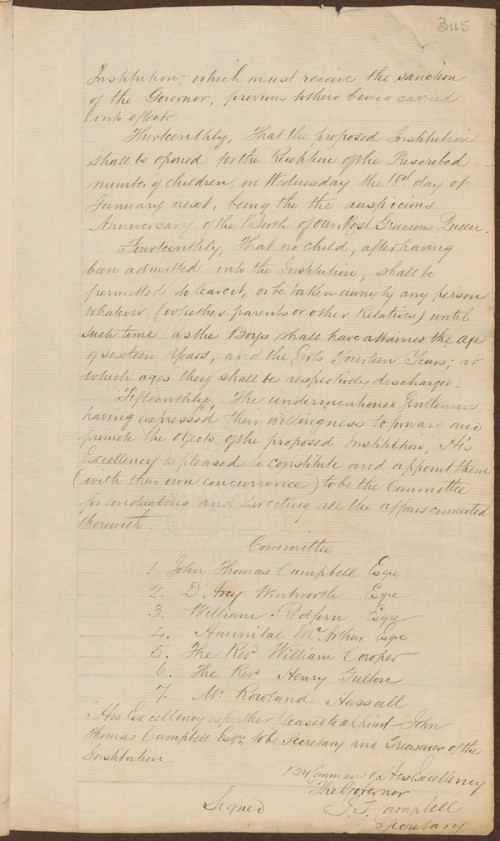 345
Institution; which must receive the sanction
of the Governor, previous to their being carried
into effect
Thirteenthly, That the proposed Institution
shall be opened for the Reception of the Prescribed
number of children, on Wednesday the 18th day of
January next, being the the auspicious
Anniversary of the Birth of our Most Gracious Queen.
Fourteenthly, That no child, after having
been admitted into the Institution, shall be
permitted to leave it, or be taken away by any person
whatever (whether parents or other Relatives) until
such time as the Boys shall have attained the age
of sixteen Years, and the Girls Fourteen Years; at
which ages they shall be respectively discharged.
Fifteenthly, The undermentioned Gentlemen
having expressed their willingness to forward and
promote the objects of the proposed Institution, His
Excellency is pleased to constitute and appoint them
(with their own concurrence) to be the Committee
for conducting and directing all the affairs connected
therewith.
Committee
1. John Thomas Campbell Esqre
2. D'Arcy Wentworth Esqre
3. William Redfern Esqre
4. Hannibal McArthur Esqre
5. The Revd William Cowper
6. The Revd Henry Fulton
7. Mr Rowland Hassall
His Excellency is further pleased to appoint John
Thomas Campbell Esqr, to be Secretary and Treasurer of the
Institution.
By Command of His Excellency
The Governor
Signed J. T. Campbell
Secretary